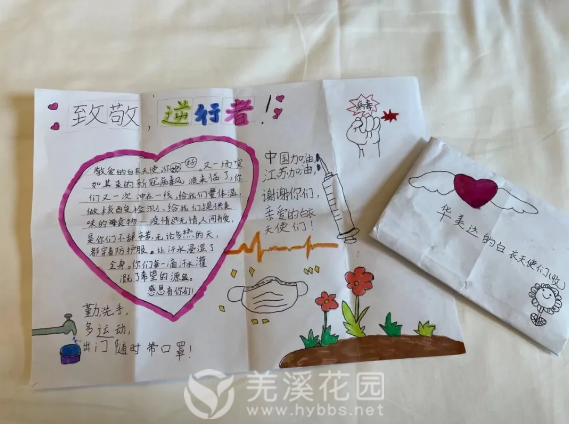 致敬，逆行者！
敬爱的白衣天使，你们好，又一场突
如其来的新冠病毒，袭来临了，你
们又一次冲在一线，给我们量体温
做核酸检测，给我们提供美
味的
疫情无情人间有爱，
是你们不辞辛苦，无论多热的天，
都穿着防护服。让汗水浸湿了
全身。你们每一滴汗水灌
溉了希望的源泉。
感恩有你们！
中国加油，
江苏加油，
谢谢你们，
亲爱的白衣
天使们！
病毒
勤洗手，
多运动，
出门随时带口罩！
华美达的白衣天使们(收)
羌溪花园
www.hybbs.net